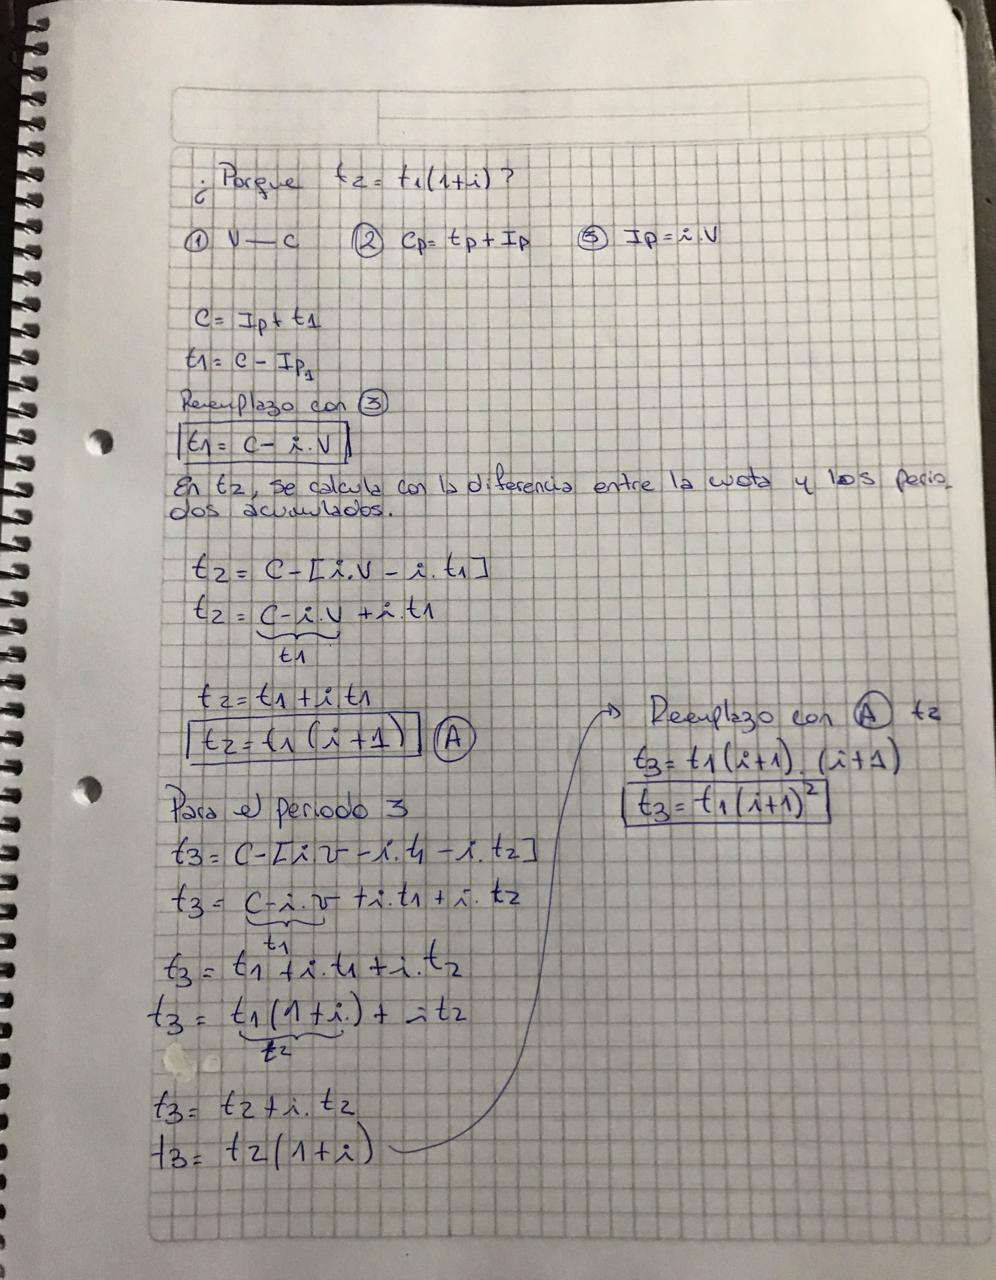 ¿ Porque t2 = t1(1+i) ?
① V — C ② Cp = tp + Ip ③ Ip = i.V
C = Ip + t1
t1 = C - Ip1
Reemplazo con ③
t1 = C - i.V
En t2, se calcula con la diferencia entre la cuota y los perio
dos acumulados.
t2 = C - [i.V - i.t1]
t2 = C - i.V + i.t1
t1
t2 = t1 + i.t1
t2 = t1(i+1) Ⓐ
Para el periodo 3
t3 = C - [i.v - i.t1 - i.t2]
t3 = C - i.v + i.t1 + i.t2
t1
t3 = t1 + i.t1 + i.t2
t3 = t1(1+i.) + it2
t2
t3 = t2 + i.t2
t3 = t2(1+i)
Reemplazo con Ⓐ t2
t3 = t1(i+1).(i+1)
t3 = t1(i+1)²